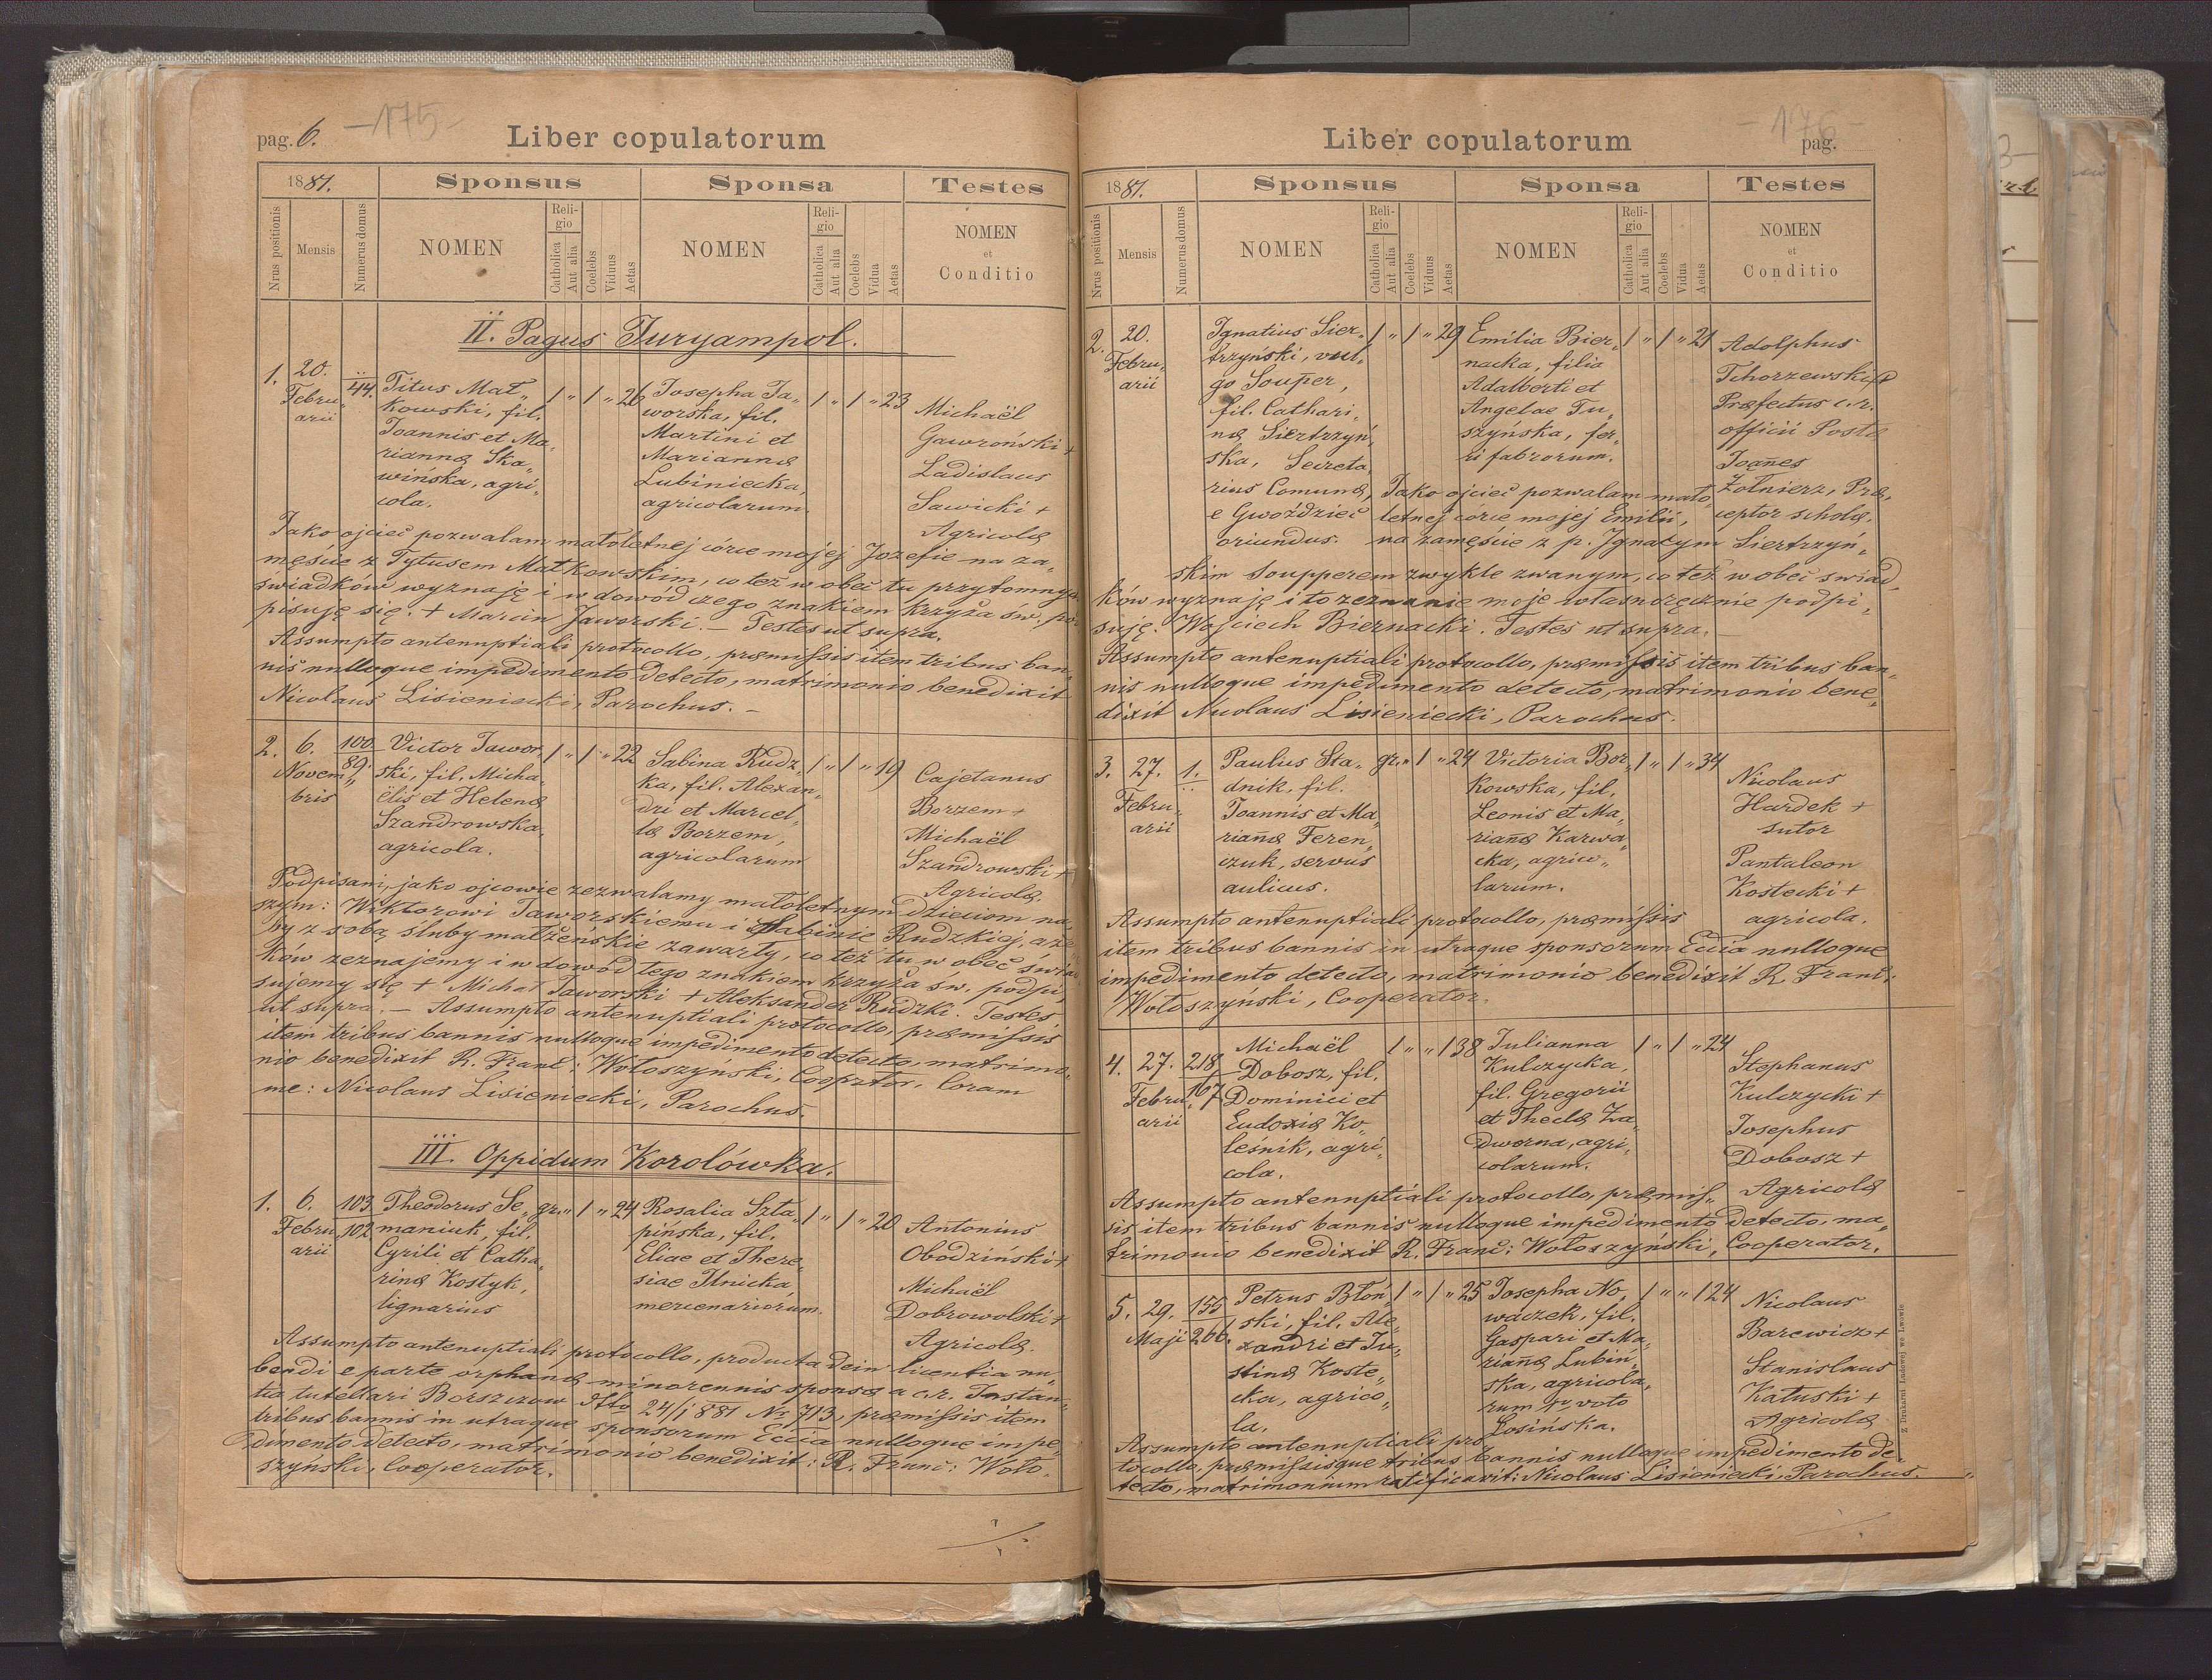 pag. 6.
-175-
Liber copulatorum
1881.
Sponsus
Sponsa
Testes
Nrus positionis
Mensis
Numerus domus
NOMEN
Religio
Catholica
Aut alia
Coelebs
Viduus
Aetas
NOMEN
Religio
Catholica
Aut alia
Coelebs
Vidua
Aetas
NOMEN
et
Conditio
II. Pagus Juryampol.
1.
20.
Febru„
arii
44.
Titus Mat„
kowski, fil.
Joannis et Ma„
rianna Ska„
wińska, agri„
cola.
1 „ 1 „ 26
Josepha Ja„
worska, fil.
Martini et
Marianna
Lubiniecka,
agricolarum.
1 „ 1 „ 23
Michaël
Gawroński +
Ladislaus
Sawicki +
Agricolæ
Jako ojciec pozwalam małoletnej córce mojej Jozefie na za„
męście z Tytusem Matkowskim, co też w obec tu przytomnych
świadków wyznaję i w dowód czego znakiem krzyża św. pod„
pisuję się. + Marcin Jaworski. — Testes ut supra.
Assumpto antenuptiali protocollo, præmissis item tribus ban„
nis nulloque impedimento detecto, matrimonio benedixit
Nicolaus Lisieniecki, Parochus. —
2.
6.
Novem„
bris
100
89.
Victor Jawor„
ski, fil. Micha„
ëlis et Helenæ
Szandrowska,
agricola.
1 „ 1 „ 22
Sabina Rudz„
ka, fil. Alexan„
dri et Marcel„
læ Borzem,
agricolarum
1 „ 1 „ 19
Cajetanus
Borzem +
Michaël
Szandrowski +
Agricolæ.
Podpisani, jako ojcowie zezwalamy małoletnym dzieciom na„
szym: Wiktorowi Jaworskiemu i Sabinie Rudzkiej, aże„
by z sobą śluby małżeńskie zawarły, co też tu w obec świad„
ków zeznajemy i w dowód tego znakiem krzyża św. podpi„
sujemy się + Michał Jaworski + Aleksander Rudzki. Testes
ut supra. — Assumpto antenuptiali protocollo, præmissis
item tribus bannis nulloque impedimento detecto, matrimo„
nio benedixit R. Franc: Wołoszynski, Cooprtor. Coram
me: Nicolaus Lisieniecki, Parochus.
III. Oppidum Korolówka.
1.
6.
Febru„
arii
103
102
Theodorus Se„
maniuk, fil.
Cyrili et Catha„
rinæ Kostyk,
lignarius
gr. „ 1 „ 24
Rosalia Szta„
pińska, fil.
Eliae et There„
siae Ilnicka,
mercenariorum.
1 „ 1 „ 20
Antonius
Obodziński +
Michaël
Dobrowolski +
Agricolæ.
Assumpto antenuptiali protocollo, producta dein licentia nu„
bendi e parte orphanæ minorennis sponsæ a c. r. Instan„
tia tutellari Borszczow dtto 24/1 881 No 713, præmissis item
tribus bannis in utraque sponsorum Ecclia nulloque impe„
dimento detecto, matrimonio benedixit: R. Franc: Woło„
szyński, Cooperator.
-176-
Liber copulatorum
pag.
1881.
Sponsus
Sponsa
Testes
Nrus positionis
Mensis
Numerus domus
NOMEN
Religio
Catholica
Aut alia
Coelebs
Viduus
Aetas
NOMEN
Religio
Catholica
Aut alia
Coelebs
Vidua
Aetas
NOMEN
et
Conditio
2.
20.
Febru„
arii
Ignatius Sier„
trzyński, vul„
go Soupper,
fil. Cathari„
næ Siertrzyń„
ska, Secreta„
rius Comunæ,
e Gwoździec
oriundus.
1 „ 1 „ 29
Emilia Bier„
nacka, filia
Adalberti et
Angelae Tu„
szyńska, fer„
ri fabrorum.
1 „ 1 „ 21
Adolphus
Tchorzewski
Præfectus c. r.
officii Postæ
Joañes
Żołnierz, Præ„
ceptor scholæ.
Jako ojciec pozwalam mało„
letnej córce mojej Emilii,
na zamęście z p. Ignacym Siertrzyń„
skim Soupperem zwykle zwanym, co też w obec świad„
ków wyznaję i to zeznanie moje własnoręcznie podpi„
suję. Wojciech Biernacki. Testes ut supra. —
Assumpto antenuptiali protocollo, præmissis item tribus ban„
nis nulloque impedimento detecto, matrimonio bene„
dixit Nicolaus Lisieniecki, Parochus.
3.
27.
Febru„
arii
1.
Paulus Sta„
dnik, fil.
Joannis et Ma„
riañæ Feren„
czuk, servus
aulicus.
gr. „ 1 „ 24
Victoria Bor„
kowska, fil.
Leonis et Ma„
riañæ Karwa„
cka, agrico„
larum.
1 „ 1 „ 34
Nicolaus
Hardek +
sutor
Pantaleon
Kostecki +
agricola.
Assumpto antenuptiali protocollo, præmissis
item tribus bannis in utraque sponsorum Ecclia nulloque
impedimento detecto, matrimonio benedixit R. Franc:
Wołoszyński, Cooperator.
4.
27.
Febru„
arii
218
167
Michaël
Dobosz, fil.
Dominici et
Eudoxiæ Ko„
leśnik, agri„
cola.
1 „ „ 1 38
Julianna
Kulczycka,
fil. Gregorii
et Theclæ Za„
dworna, agri„
colarum.
1 „ 1 „ 24
Stephanus
Kulczycki +
Josephus
Dobosz +
Agricolæ
Assumpto antenuptiali protocollo, præmis„
sis item tribus bannis nulloque impedimento detecto, ma„
trimonio benedixit R. Franc: Wołoszyński, Cooperator.
5.
29.
Maji
155
266.
Petrus Błoń„
ski, fil. Ale„
xandri et Ju„
stinæ Koste„
cka, agrico„
la.
1 „ 1 „ 25
Josepha No„
waczek, fil.
Gaspari et Ma„
riañæ Lubiń„
ska, agricola„
rum 1º voto
Łosińska.
1 „ „ 1 24
Nicolaus
Barewicz +
Stanislaus
Katuski +
Agricolæ
Assumpto antenuptiali pro„
tocollo, præmissisque tribus bannis nulloque impedimento de„
tecto, matrimonium ratificavit: Nicolaus Lisieniecki, Parochus.
Z Drukarni Ludowej we Lwowie